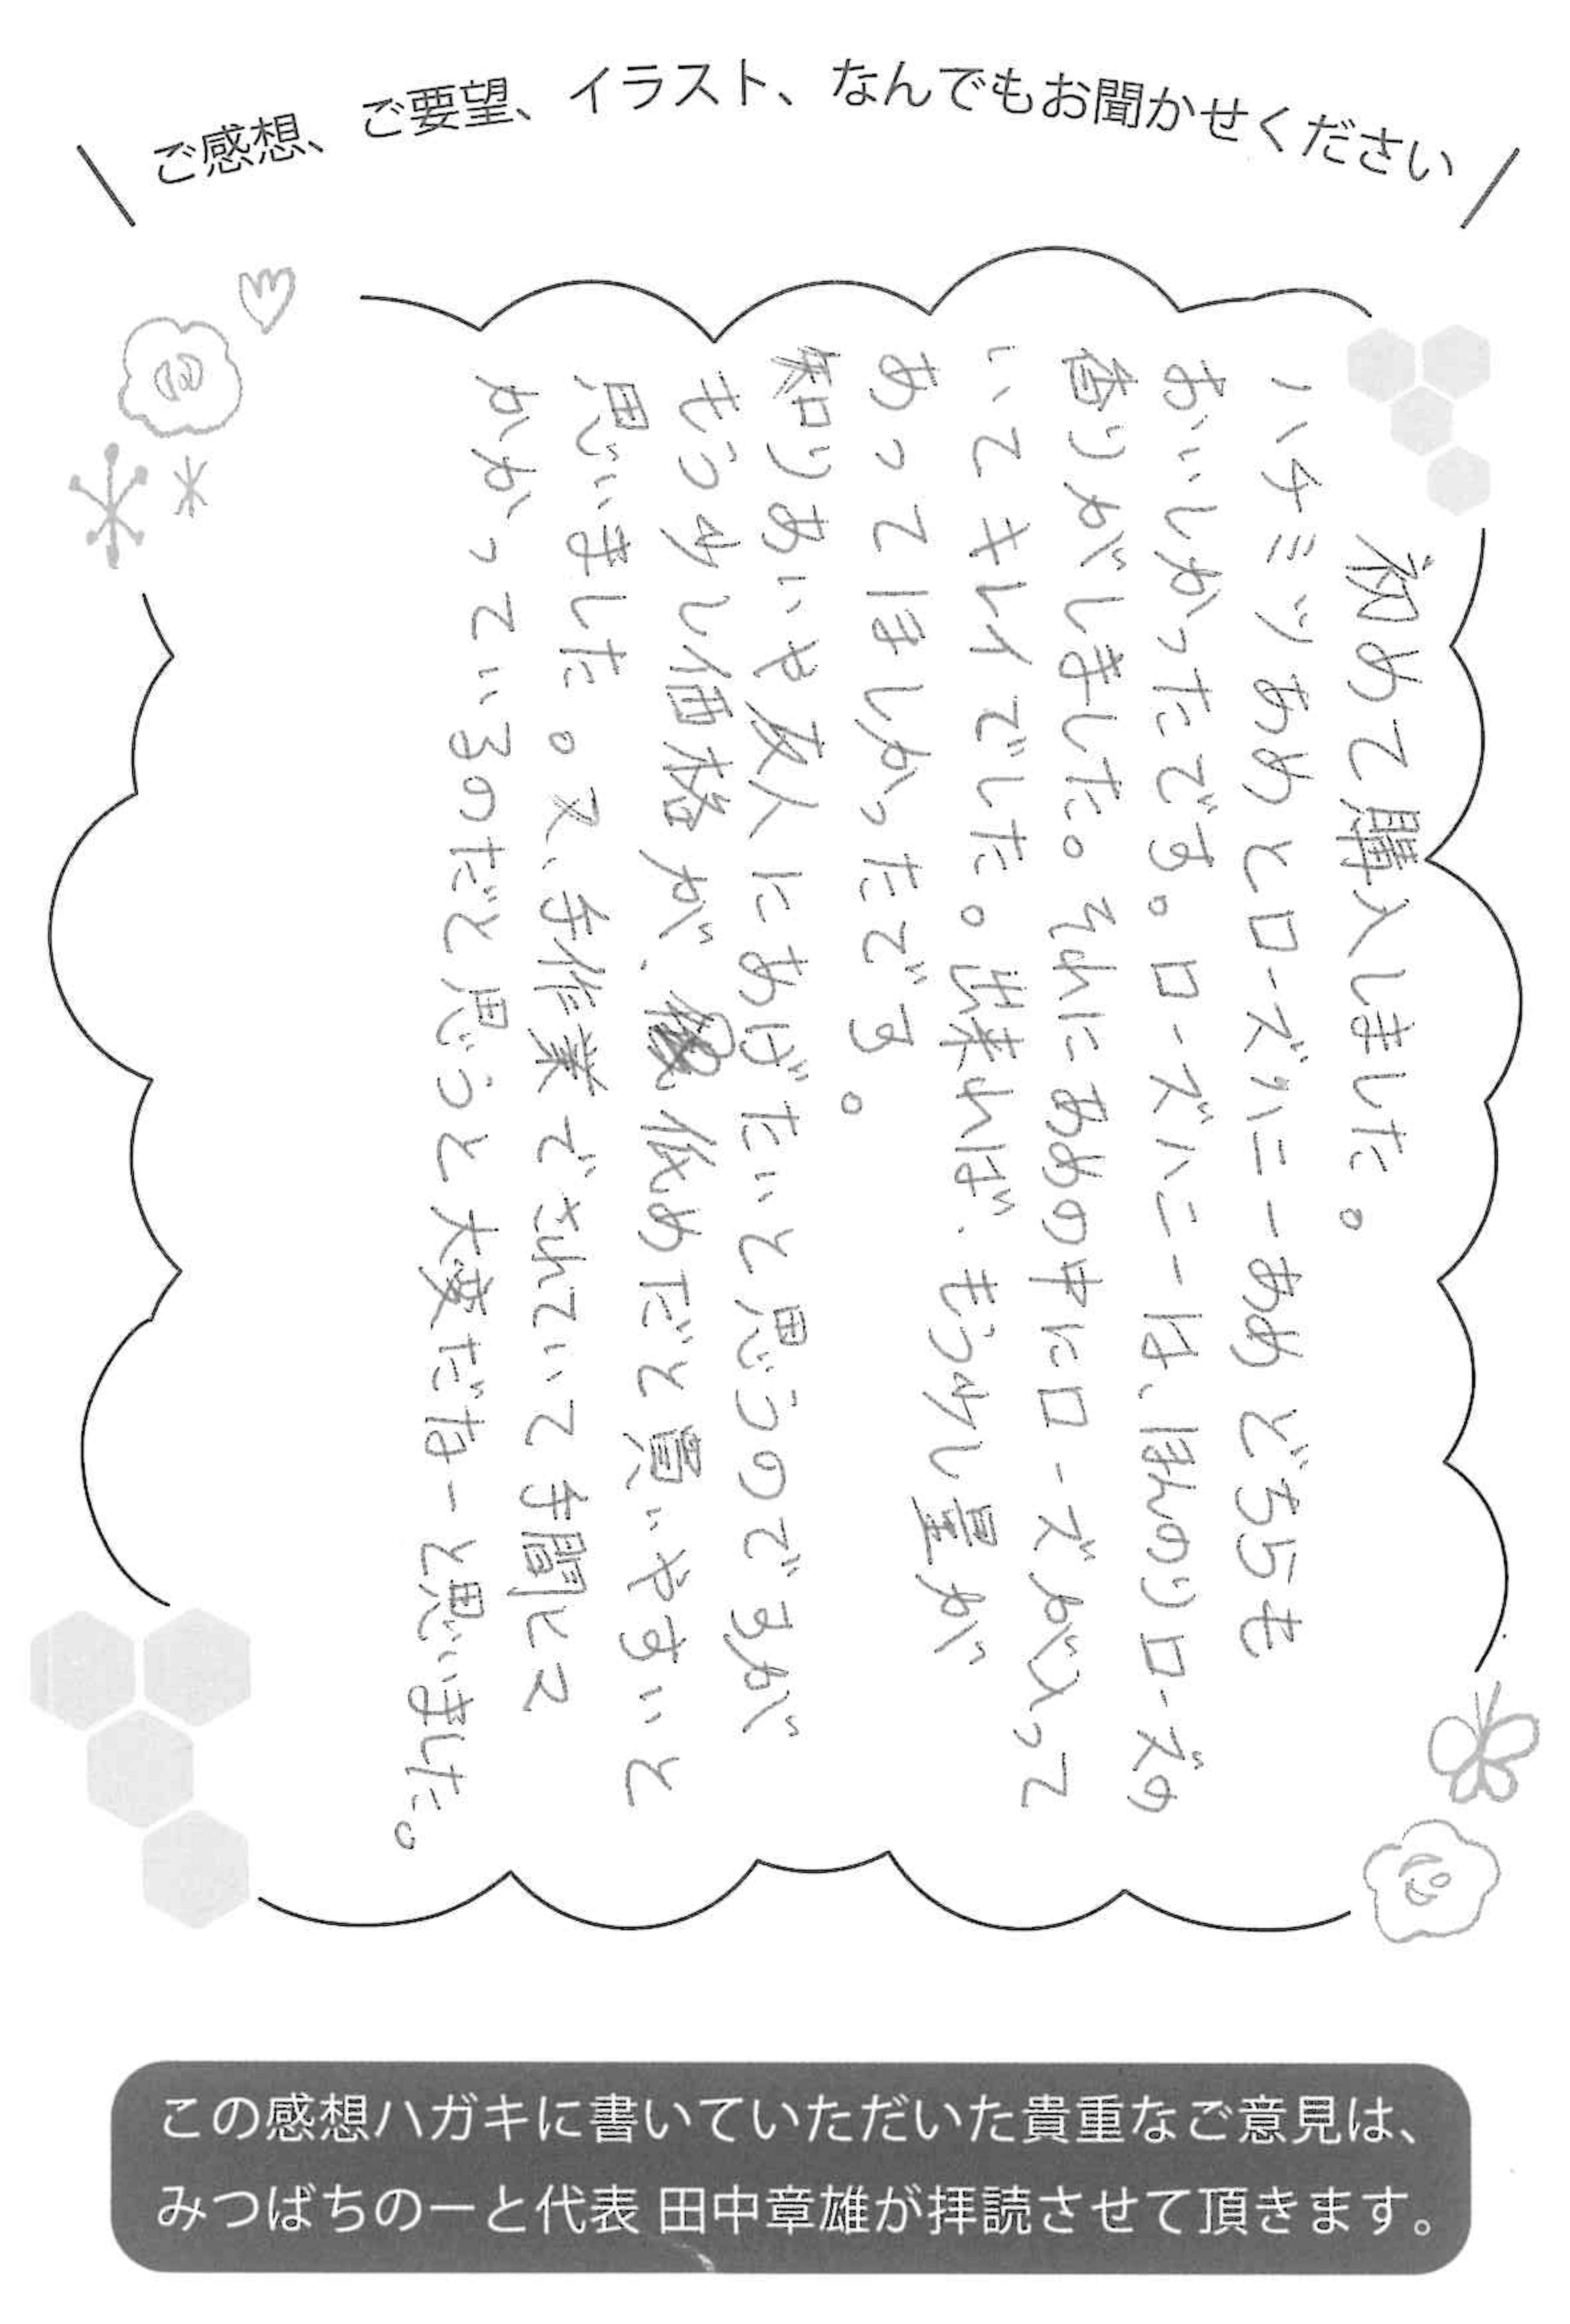 ご感想、ご要望、イラスト、なんでもお聞かせください
初めて購入しました。
ハチミツあめとローズハニーあめ どちらも
おいしかったです。ローズハニーは、ほんのりローズの
香りがしました。それにあめの中にローズが入って
いてキレイでした。出来れば、もう少し量が
あってほしかったです。
知りあいや友人にあげたいと思うのですが
もう少し価格が、低めだと買いやすいと
思いました。又、手作業でされていて手間ヒマ
かかっているのだと思うと大変だなーと思いました。
この感想ハガキに書いていただいた貴重なご意見は、
みつばちのーと代表 田中章雄が拝読させて頂きます。